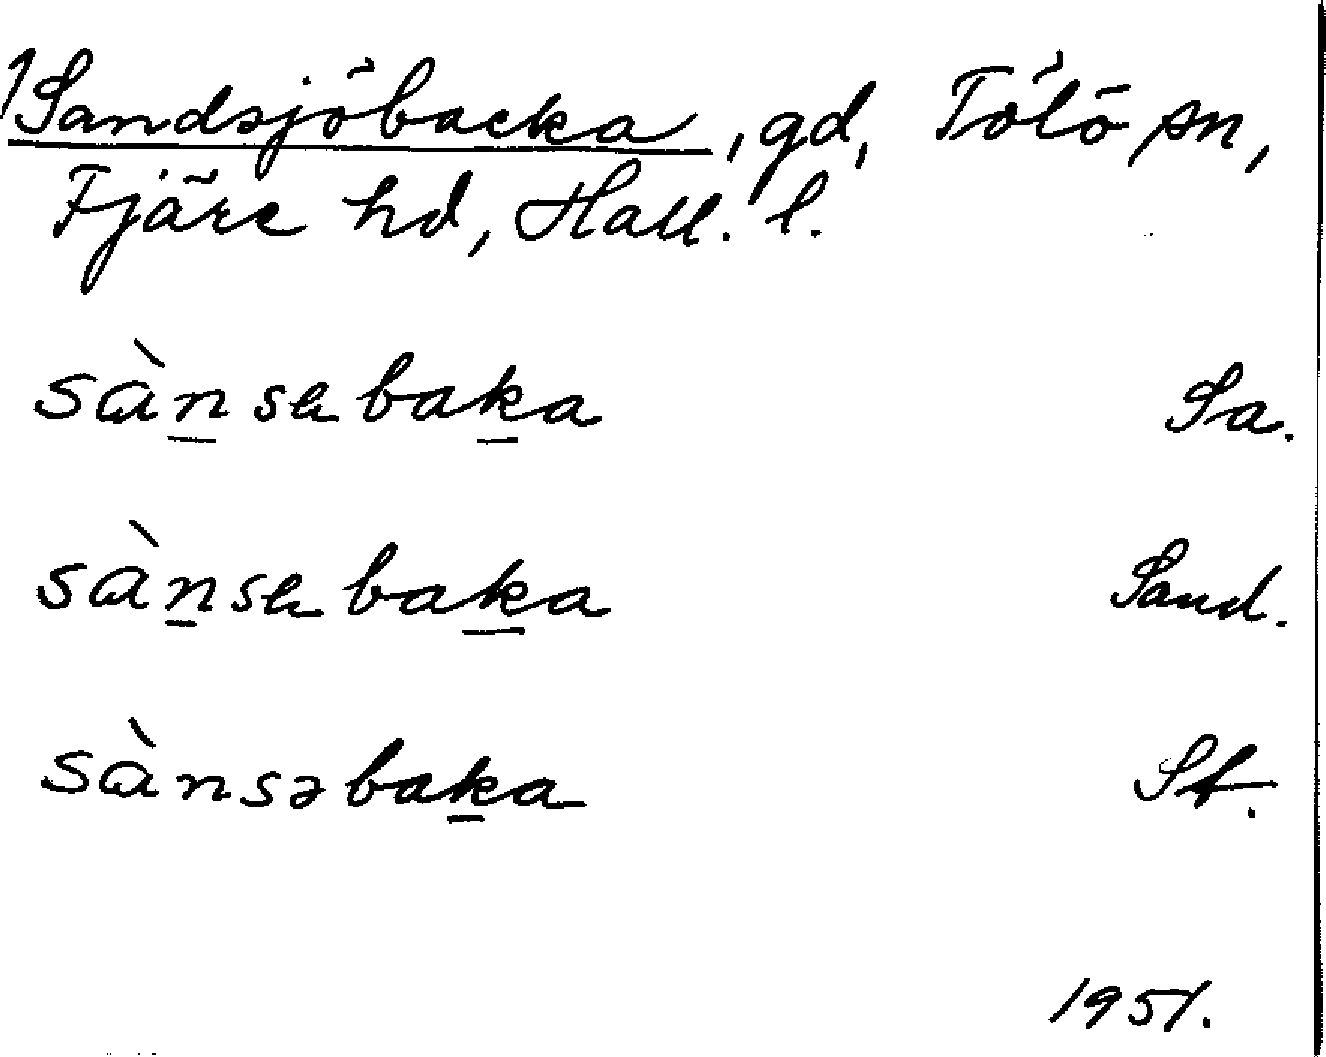 Sandsjöbacka, gd, Tölö sn,
Fjäre hd, Hall. l.
sàn̲sebak̲a Sa.
sàn̲sebak̲a Sand.
sànsəbak̲a St.
1951.